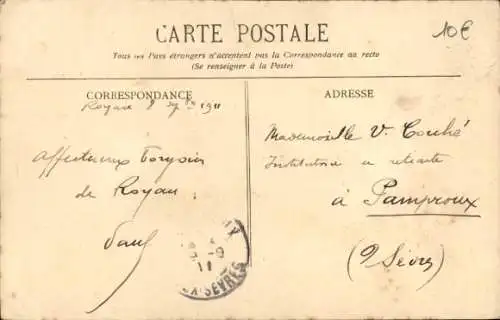 CARTE POSTALE
10€
Tous les Pays étrangers n'acceptent pas la Correspondance au recto
(Se renseigner à la Poste)
CORRESPONDANCE
Royan 8 7bre 1911
Affectueux
de Royan
Paul
ADRESSE
Mademoiselle V. Couché
Institutrice en retraite
à Pamproux
(2 Sèvres)
11
SÈVRES